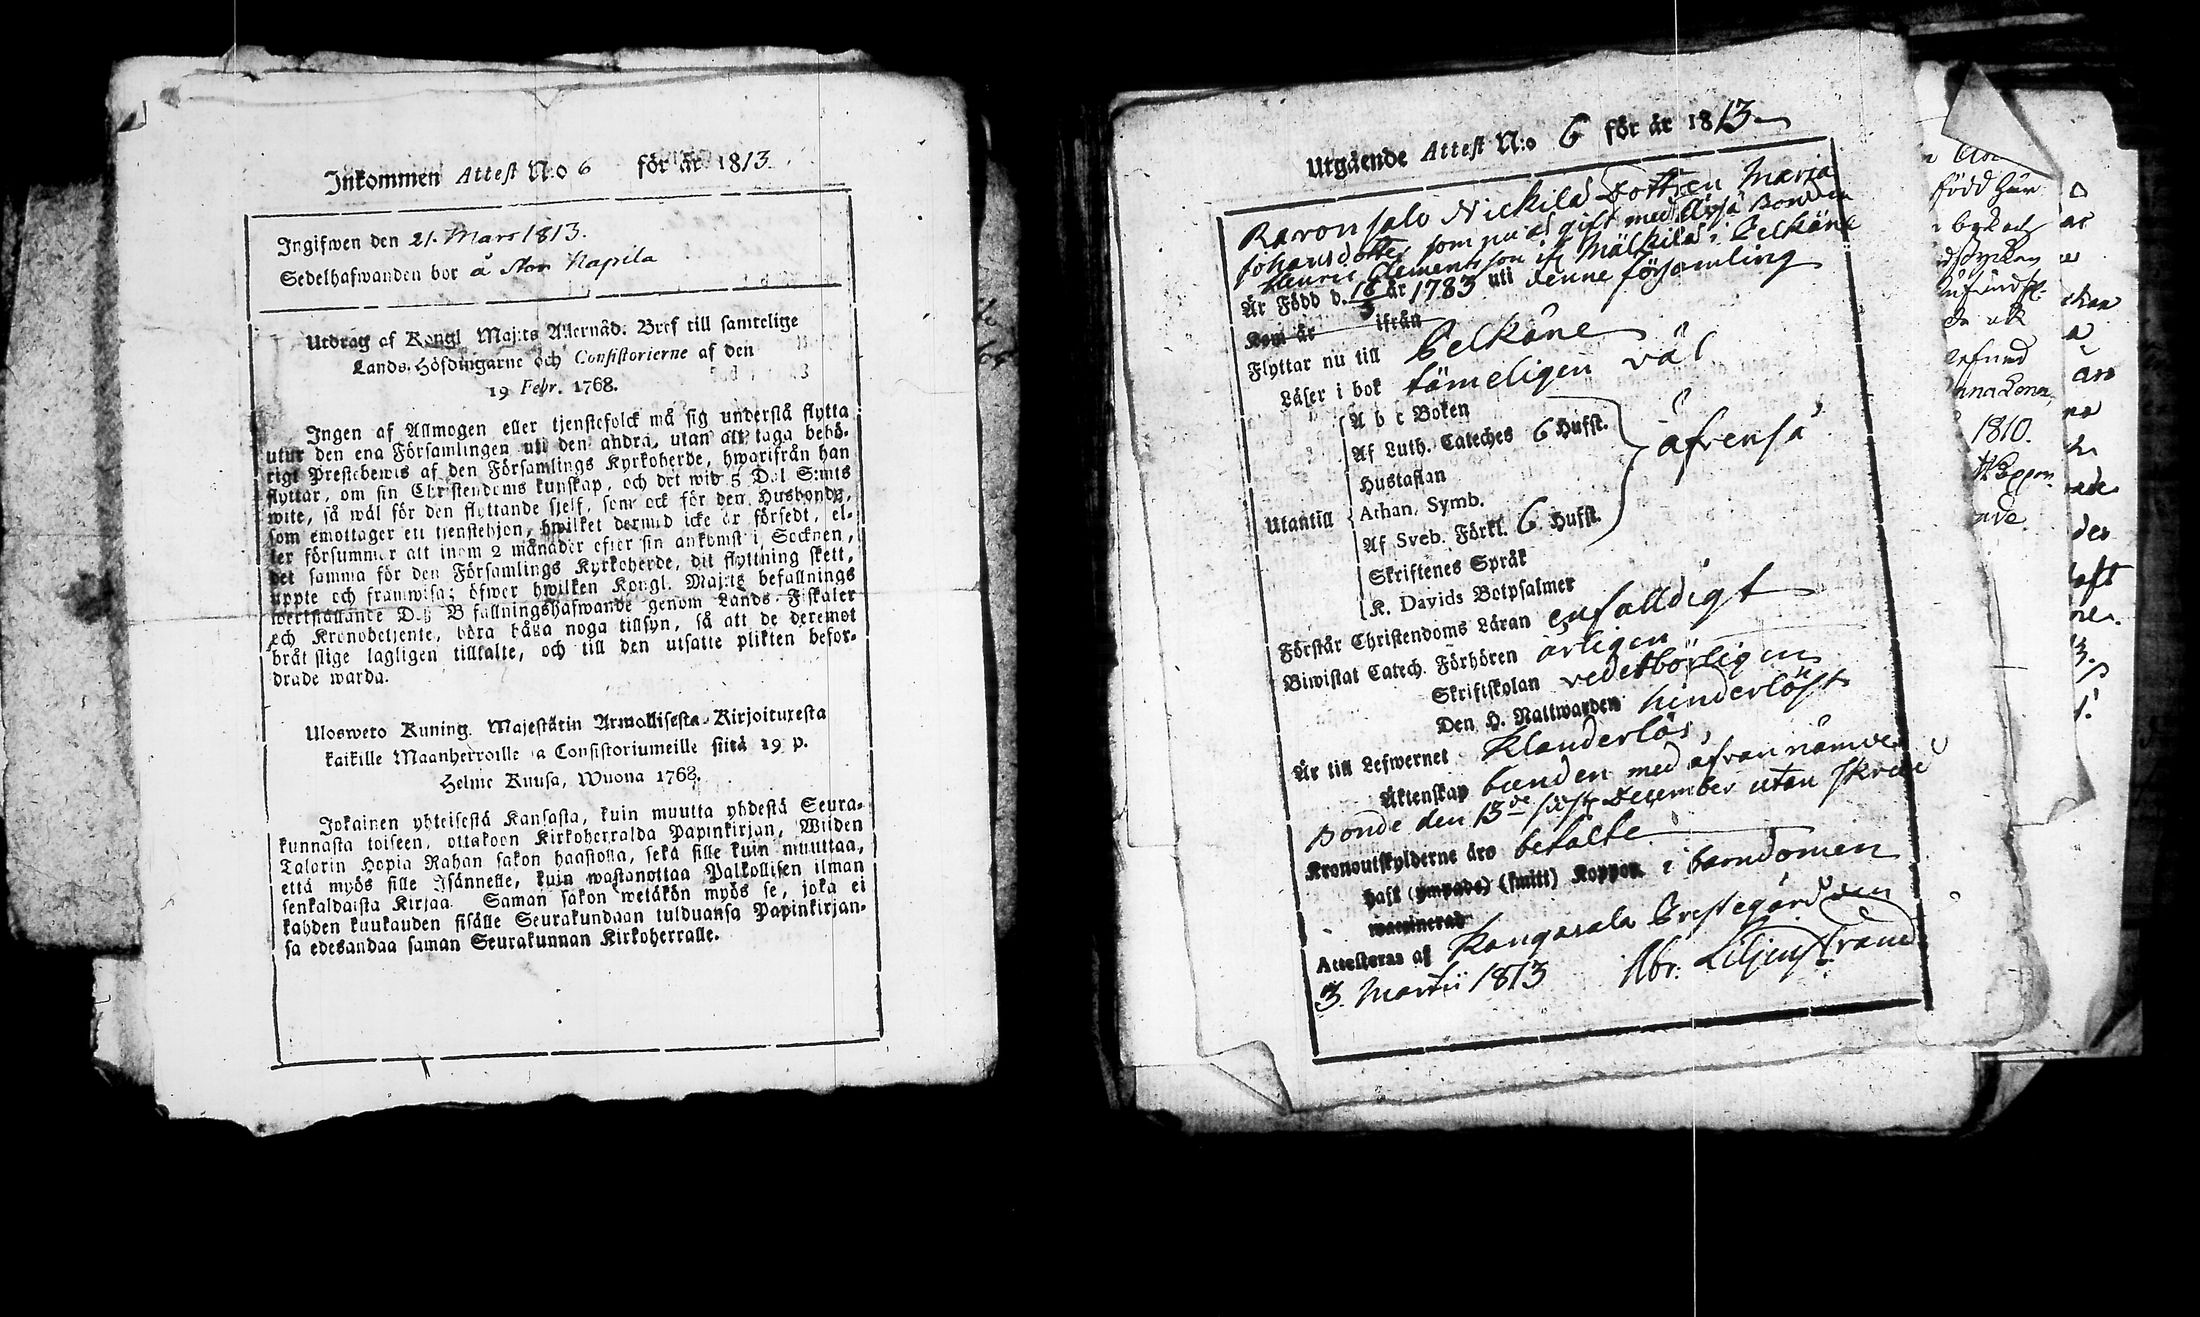 Inkommen Attest N:o 6 för år 1813.
Ingifwen den 21. Mars 1813.
Sedelhafwanden bor å Stor Napila
Utdrag af Kongl Maj:ts Allernåd. Bref till samtelige
Lands-Höfdingarne och Consistorierne af den
19 Febr. 1768.
Ingen af Allmogen eller tjenstefolck må sig understå flytta
utur den ena Församlingen uti den andra, utan att taga behö-
rigt Prestebewis af den Församlings Kyrkoherde, hwarifrån han
flyttar, om sin Christendoms kunskap, och det wid 5 Dal. S:mts
wite, så wäl för den flyttande sjelf, som ock för den Husbonde,
som emottager ett tjenstehjon, hwilket dermed icke är försedt, el-
ler försummar att inom 2 månader efter sin ankomst i Socknen,
det samma för den Församlings Kyrkoherde, dit flyttning skett,
uppte och framwisa; öfwer hwilken Kongl. Maj:ts befallnings
werkställande Deß Befallningshafwande genom Lands-Fiskaler
och Kronobetjente, böra hålla noga tillsyn, så att de deremot
bråtslige lagligen tilltalte, och till den utsatte plikten befor-
drade warda.
Ulosweto Kuning. Majestätin Armollisesta Kirjoituxesta
kaikille Maanherroille ja Consistoriumeille siitä 19 p.
Helme Kuusa, Wuona 1768.
Jokainen yhteisestä Kansasta, kuin muutta yhdestä Seura-
kunnasta toiseen, ottakoon Kirkoherralda Papinkirjan, Wiiden
Talarin Hopia Rahan sakon haastolla, sekä sille kuin muuttaa,
että myös sille Isännelle, kuin wastanottaa Palkollisen ilman
senkaldaista Kirjaa. Saman sakon wetäkön myös se, joka ei
kahden kuukauden sisälle Seurakundaan tulduansa Papinkirjan-
sa edesandaa saman Seurakunnan Kirkoherralle.
Utgående Attest N:o 6 för år 1813
Raronsalo Nickilä Dottren Maria
Johansdotter som nu är gift med Bonden
Henric Clementsson ifr. Mälkilä i Pelkäne
Är Född d. 18/3 år 1783 uti denne församling
Kom år ifrån
Flyttar nu till Pelkäne
Läser i bok tämeligen väl
Utantill
A b c Boken
Af Luth. Cateches 6 Hufst.
Hustaflan
Athan. Symb.
Af Sveb. Förkl. 6 Hufst.
Skriftenes Språk
K. Davids Botpsalmer
åfvenså
Förstår Christendoms Läran enfalldigt
Biwistat Catech. Förhören årligen
Skriftskolan vederbörligen
Den H. Nattwarden hinderlöst
Är till Lefwernet Klanderlös,
Äktenskap bunden med ofvannämde
Bonde den 13de sistl. December utan
Kronoutskylderne äro betalte
Haft (ympade) (smitt) Koppor i barndomen
waccinerad
Attesteras af Kangasala Prestegård den
3. Martii 1813 Abr: Liljenstrand
född
1810.